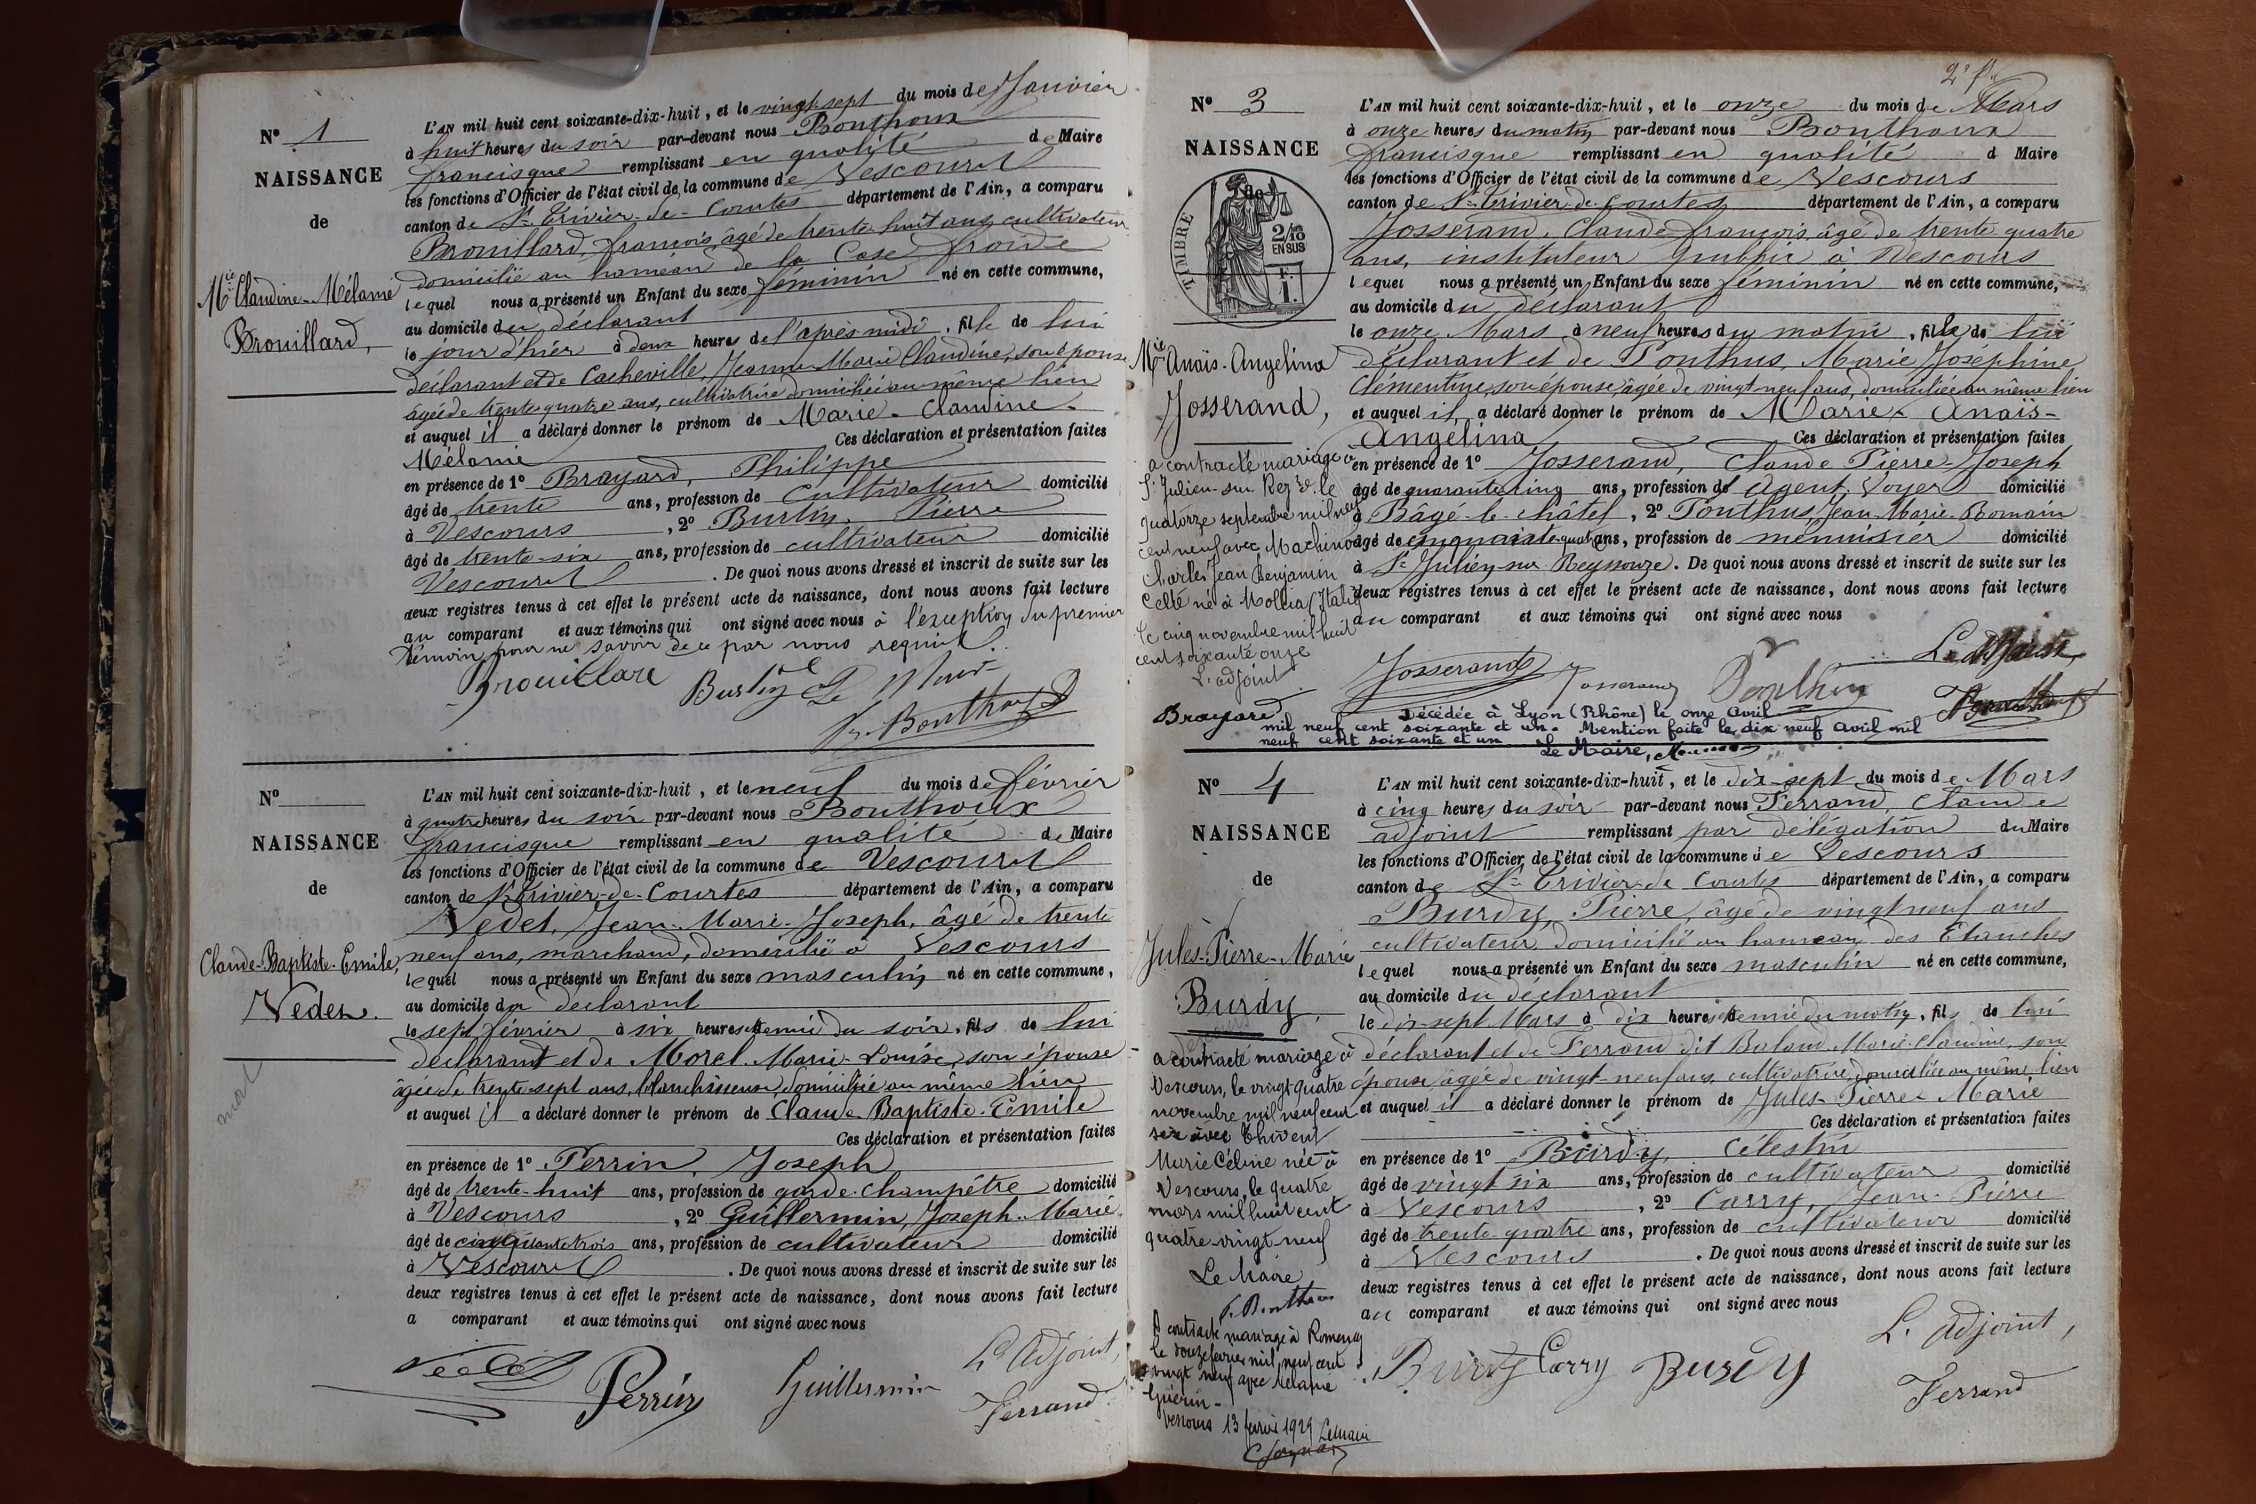 N° 1
NAISSANCE
de
Mie Claudine-Mélanie
Brouillard,
L'AN mil huit cent soixante-dix-huit, et le vingt sept du mois de Janvier
à huit heures du soir par-devant nous Bonthoux
francisque remplissant en qualité de Maire
les fonctions d'Officier de l'état civil de la commune de Vescours
canton de St Trivier-de-Courtes département de l'Ain, a comparu
Brouillard, françois, âgé de trente huit ans, cultivateur
domicilié au hameau de la Case froide
lequel nous a présenté un Enfant du sexe féminin né en cette commune,
au domicile du déclarant
le jour d'hier à deux heures de l'après midi, fille de lui
déclarant et de Cacheville, Jeanne Marie Claudine, son épouse
âgée de trente quatre ans, cultivatrice domiciliée au même lieu
et auquel il a déclaré donner le prénom de Marie-Claudine-
Mélanie Ces déclaration et présentation faites
en présence de 1° Brayard, Philippe
âgé de trente ans, profession de cultivateur domicilié
à Vescours, 2° Burtin, Pierre
âgé de trente-six ans, profession de cultivateur domicilié
Vescours. De quoi nous avons dressé et inscrit de suite sur les
deux registres tenus à cet effet le présent acte de naissance, dont nous avons fait lecture
au comparant et aux témoins qui ont signé avec nous à l'exception du premier
témoin pour ne savoir de ce par nous requis.
Brouillard Burtin Le Maire
fr. Bonthoux
N°
NAISSANCE
de
Claude-Baptiste-Emile,
Vedel.
mort
L'AN mil huit cent soixante-dix-huit, et le neuf du mois de février
à quatre heures du soir par-devant nous Bonthoux
francisque remplissant en qualité de Maire
les fonctions d'Officier de l'état civil de la commune de Vescours
canton de St Trivier-de-Courtes département de l'Ain, a comparu
Vedel, Jean-Marie-Joseph, âgé de trente
neuf ans, marchand, domicilié à Vescours
lequel nous a présenté un Enfant du sexe masculin né en cette commune,
au domicile du déclarant
le sept février à six heures et demie du soir, fils de lui
déclarant et de Morel Marie-Louise, son épouse
âgée de trente-sept ans, blanchisseuse, domiciliée au même lieu
et auquel il a déclaré donner le prénom de Claude-Baptiste-Emile
Ces déclaration et présentation faites
en présence de 1° Perrin, Joseph
âgé de trente-huit ans, profession de garde-champêtre domicilié
à Vescours, 2° Guillermin, Joseph-Marie
âgé de cinquante trois ans, profession de cultivateur domicilié
à Vescours. De quoi nous avons dressé et inscrit de suite sur les
deux registres tenus à cet effet le présent acte de naissance, dont nous avons fait lecture
a comparant et aux témoins qui ont signé avec nous
Vedel Perrin Guillermin L'adjoint,
Ferrand
2e fet
N° 3
NAISSANCE
TIMBRE
2/10 EN SUS
Mie Anaïs-Angelina
Josserand,
a contracté mariage à
St Julien-sur-Reyze le
quatorze septembre mil neuf
cent neuf avec Machino
Charles Jean Benjamin
Celte né à Mollia (Italie)
le cinq novembre mil huit
cent soixante onze
L'adjoint
Brayard
L'AN mil huit cent soixante-dix-huit, et le onze du mois de Mars
à onze heures du matin par-devant nous Bonthoux
francisque remplissant en qualité d Maire
les fonctions d'Officier de l'état civil de la commune de Vescours
canton de St Trivier-de-Courtes département de l'Ain, a comparu
Josserand, Claude françois, âgé de trente quatre
ans, instituteur public à Vescours
lequel nous a présenté un Enfant du sexe féminin né en cette commune,
au domicile du déclarant
le onze Mars à neuf heures du matin, fille de lui
déclarant et de Ponthus, Marie Josephine
Clémentine, son épouse, âgée de vingt neuf ans, domiciliée au même lieu
et auquel il a déclaré donner le prénom de Marie-Anaïs-
Angélina Ces déclaration et présentation faites
en présence de 1° Josserand, Claude Pierre-Joseph
âgé de quarante cinq ans, profession de Agent Voyer domicilié
à Bâgé-le-châtel, 2° Ponthus, Jean-Marie-Romain
âgé de cinquante-quatre ans, profession de menuisier domicilié
à St Julien-sur Reyssouze. De quoi nous avons dressé et inscrit de suite sur les
deux registres tenus à cet effet le présent acte de naissance, dont nous avons fait lecture
au comparant et aux témoins qui ont signé avec nous
Josserand Josserand Ponthus Le Maire,
Bonthoux
Décédée à Lyon (Rhône) le onze Avril
mil neuf cent soixante et un. Mention faite le dix neuf avril mil
neuf cent soixante et un Le Maire,
N° 4
NAISSANCE
de
Jules-Pierre-Marie
Burdy.
a contracté mariage à
Vescours, le vingt quatre
novembre mil neuf cent
six avec Thivent
Marie Céline née à
Vescours, le quatre
mars mil huit cent
quatre vingt neuf
Le Maire
f. Bonthoux
A contracté mariage à Romenay
le douze février mil neuf cent
vingt neuf avec Mélanie
Guérin-
Vescours 13 février 1929 Le Maire
L'AN mil huit cent soixante-dix-huit, et le dix-sept du mois de Mars
à cinq heures du soir par-devant nous Ferrand, Claude
adjoint remplissant par délégation du Maire
les fonctions d'Officier de l'état civil de la commune de Vescours
canton de St Trivier-de Courtes département de l'Ain, a comparu
Burdy, Pierre, âgé de vingt neuf ans
cultivateur domicilié au hameau des Etanches
lequel nous a présenté un Enfant du sexe masculin né en cette commune,
au domicile du déclarant
le dix-sept Mars à dix heures et demie du matin, fils de lui
déclarant et de Ferrand dit Baland Marie-Claudine, son
épouse, âgée de vingt-neuf ans, cultivatrice, domiciliée au même lieu
et auquel il a déclaré donner le prénom de Jules-Pierre-Marie
Ces déclaration et présentation faites
en présence de 1° Burdy, Célestin
âgé de vingt six ans, profession de cultivateur domicilié
à Vescours, 2° Carry, Jean-Pierre
âgé de trente quatre ans, profession de cultivateur domicilié
à Vescours. De quoi nous avons dressé et inscrit de suite sur les
deux registres tenus à cet effet le présent acte de naissance, dont nous avons fait lecture
au comparant et aux témoins qui ont signé avec nous
Burdy Carry Burdy L'adjoint,
Ferrand